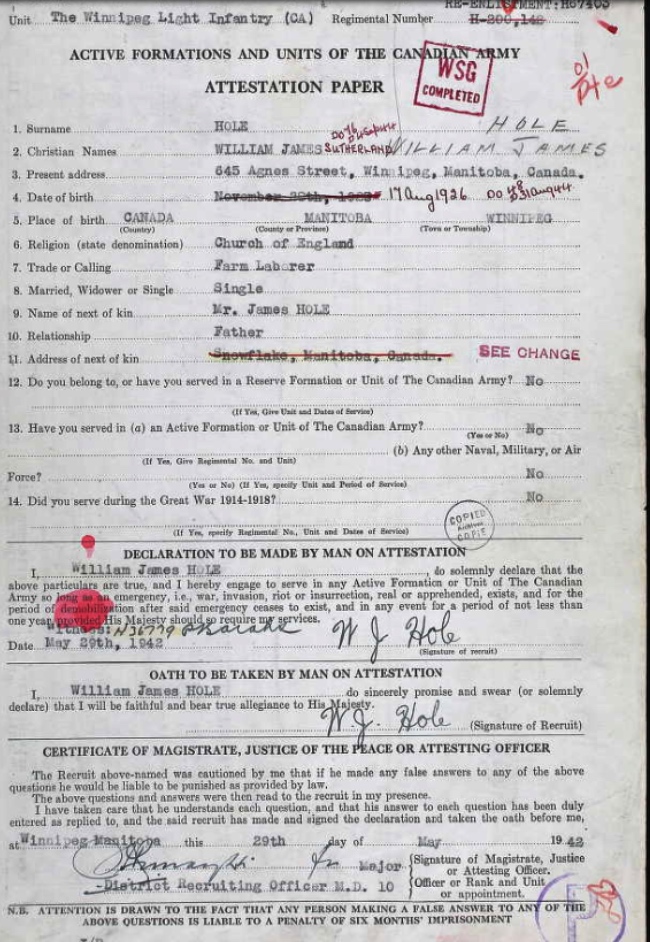 RE-ENLISTMENT: H67403
Unit The Winnipeg Light Infantry (CA) Regimental Number H-200,142
ACTIVE FORMATIONS AND UNITS OF THE CANADIAN ARMY
ATTESTATION PAPER
WSG
COMPLETED
Pte
1. Surname HOLE HOLE
2. Christian Names WILLIAM JAMES SUTHERLAND WILLIAM JAMES
3. Present address 645 Agnes Street, Winnipeg, Manitoba, Canada.
4. Date of birth November 29th, 17 Aug 1926
5. Place of birth CANADA MANITOBA WINNIPEG
(Country) (County or Province) (Town or Township)
6. Religion (state denomination) Church of England
7. Trade or Calling Farm Laborer
8. Married, Widower or Single Single
9. Name of next of kin Mr. James HOLE
10. Relationship Father
11. Address of next of kin Snowflake, Manitoba, Canada. SEE CHANGE
12. Do you belong to, or have you served in a Reserve Formation or Unit of The Canadian Army? No
(If Yes, Give Unit and Dates of Service)
13. Have you served in (a) an Active Formation or Unit of The Canadian Army? No
(Yes or No)
(b) Any other Naval, Military, or Air
(If Yes, Give Regimental No. and Unit)
Force? No
(Yes or No) (If Yes, specify Unit and Period of Service)
14. Did you serve during the Great War 1914-1918? No
(If Yes, specify Regimental No., Unit and Dates of Service)
COPIED
COPIE
DECLARATION TO BE MADE BY MAN ON ATTESTATION
I, William James HOLE, do solemnly declare that the
above particulars are true, and I hereby engage to serve in any Active Formation or Unit of The Canadian
Army so long as an emergency, i.e., war, invasion, riot or insurrection, real or apprehended, exists, and for the
period of demobilization after said emergency ceases to exist, and in any event for a period of not less than
one year, provided His Majesty should so require my services.
Witness: H36779 W J Hole
Date May 29th, 1942 (Signature of recruit)
OATH TO BE TAKEN BY MAN ON ATTESTATION
I, William James HOLE do sincerely promise and swear (or solemnly
declare) that I will be faithful and bear true allegiance to His Majesty.
W.J. Hole (Signature of Recruit)
CERTIFICATE OF MAGISTRATE, JUSTICE OF THE PEACE OR ATTESTING OFFICER
The Recruit above-named was cautioned by me that if he made any false answers to any of the above
questions he would be liable to be punished as provided by law.
The above questions and answers were then read to the recruit in my presence.
I have taken care that he understands each question, and that his answer to each question has been duly
entered as replied to, and the said recruit has made and signed the declaration and taken the oath before me,
at Winnipeg Manitoba this 29th day of May 1942
Major Signature of Magistrate, Justice
or Attesting Officer.
District Recruiting Officer M.D. 10 Officer or Rank and Unit
or appointment.
N.B. ATTENTION IS DRAWN TO THE FACT THAT ANY PERSON MAKING A FALSE ANSWER TO ANY OF THE
ABOVE QUESTIONS IS LIABLE TO A PENALTY OF SIX MONTHS' IMPRISONMENT
P